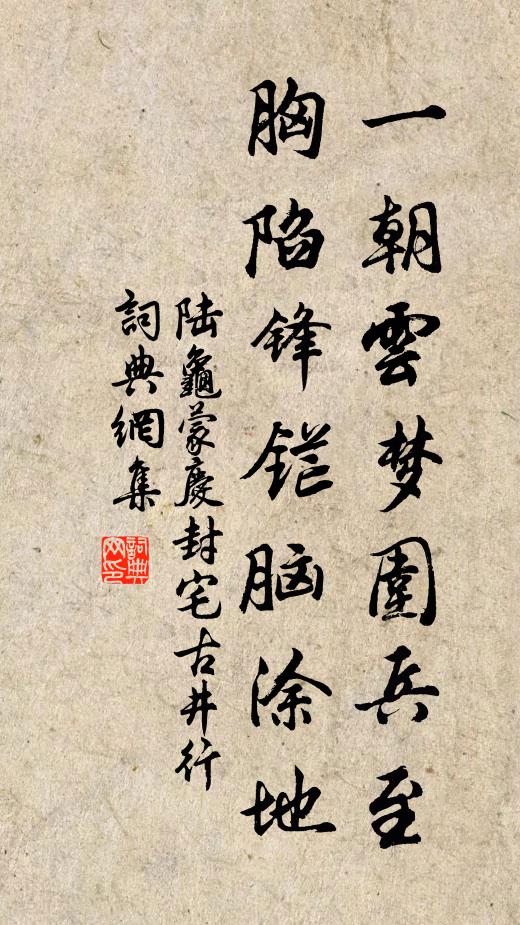 一朝雲梦圍兵至
胸陷锋铓脑涂地
陆龜蒙慶封宅古井行
詞典網集
詞典
网印